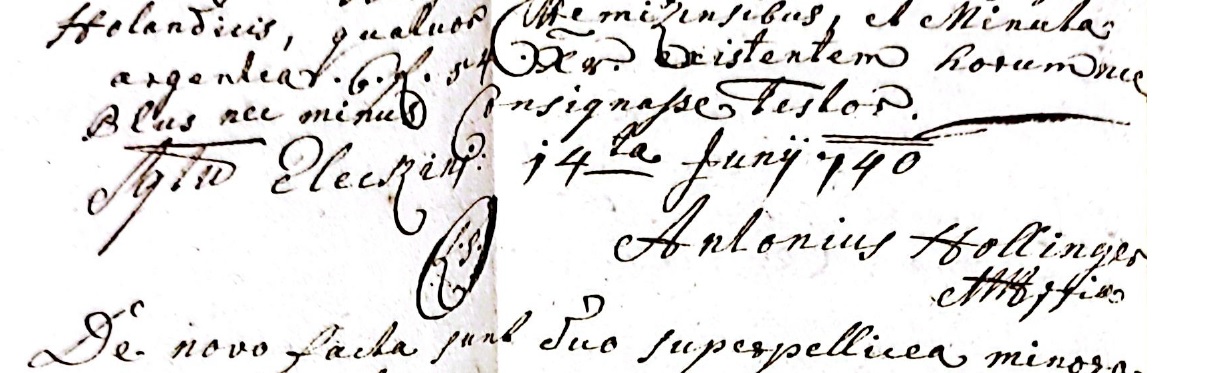 Holandicis, quatuor Cremizensibus, et Minuta
argentea f. 6. X. 54 Xr. existentem horum nec
Plus nec minus Consignasse Testor.
Sigtu Eleckini: 14ta Junij 740
(L.S.)
Antonius Hollinger
De novo facta sunt duo superpellicea minora.